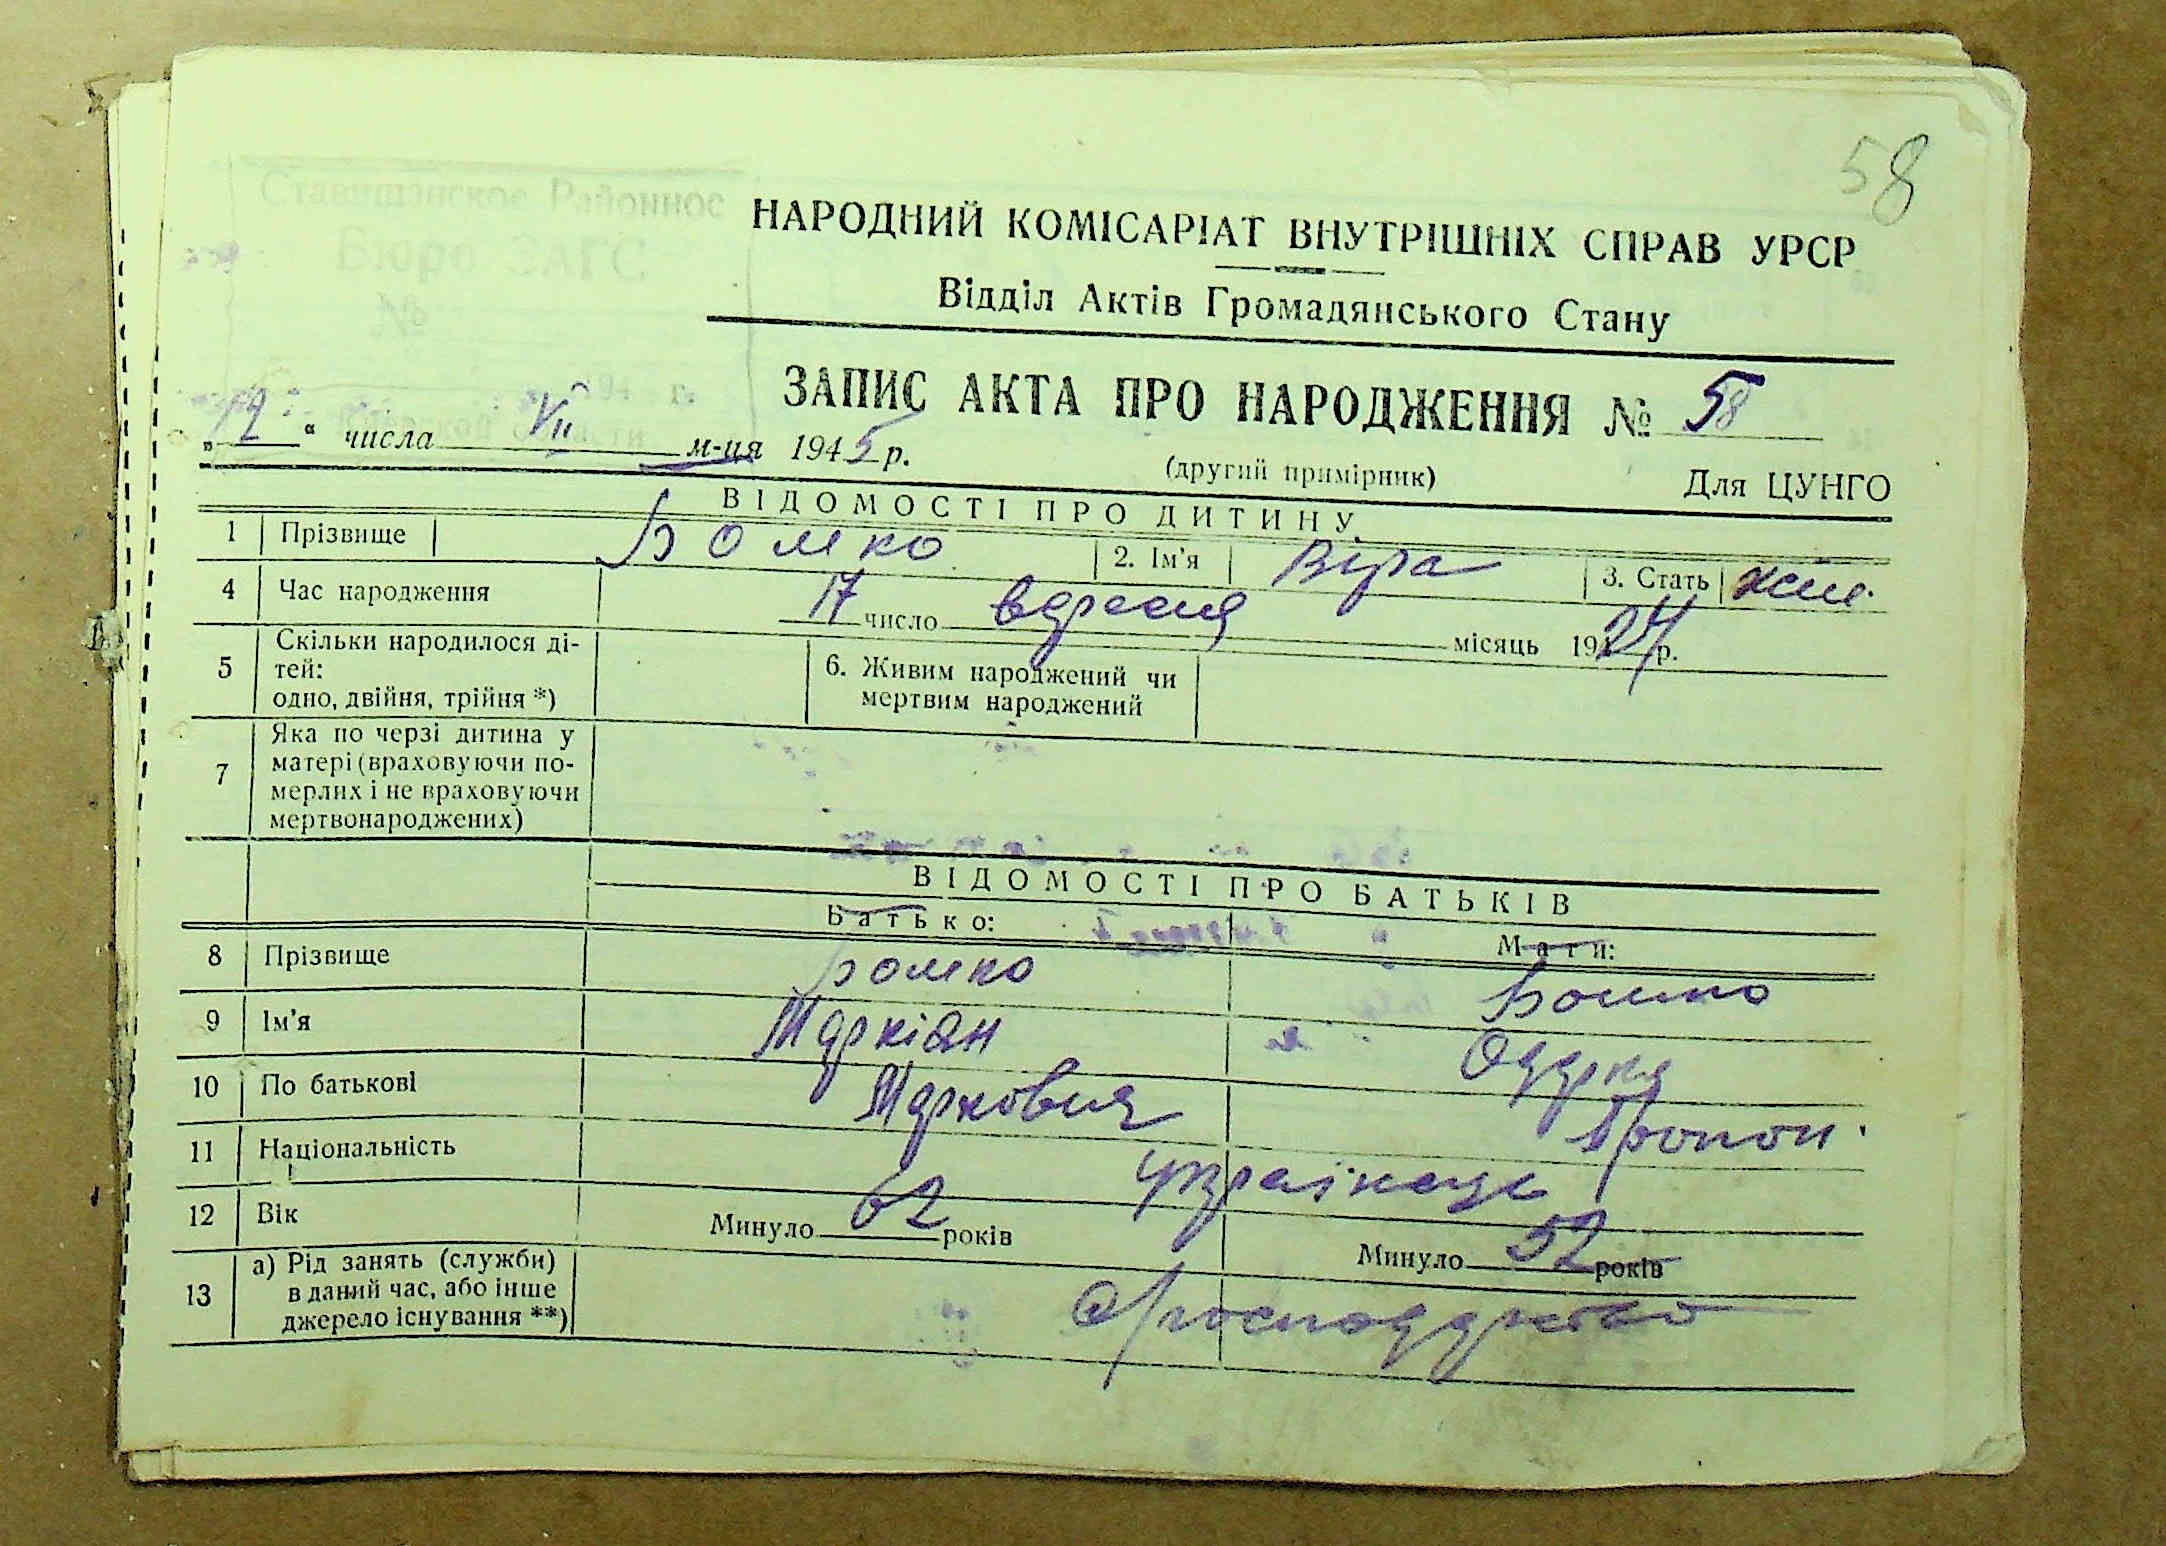 58
Ставищанское Районное
Бюро ЗАГС
№
194 г.
НАРОДНИЙ КОМІСАРІАТ ВНУТРІШНІХ СПРАВ УРСР
Відділ Актів Громадянського Стану
ЗАПИС АКТА ПРО НАРОДЖЕННЯ № 58
„12“ числа VII м-ця 1945 р.
(другий примірник)
Для ЦУНГО
ВІДОМОСТІ ПРО ДИТИНУ
1 Прізвище Бомко 2. Ім'я Віра 3. Стать жін.
4 Час народження 17 число вересня місяць 1924 р.
5 Скільки народилося ді-
тей:
одно, двійня, трійня *)
6. Живим народжений чи
мертвим народжений
7 Яка по черзі дитина у
матері (враховуючи по-
мерлих і не враховуючи
мертвонароджених)
ВІДОМОСТІ ПРО БАТЬКІВ
Батько: Мати:
8 Прізвище Бомко Бомко
9 Ім'я Маркіян Одарка
10 По батькові Маркович Прокоп.
11 Національність українець
12 Вік Минуло 62 років Минуло 52 років
13 а) Рід занять (служби)
в даний час, або інше
джерело існування **)